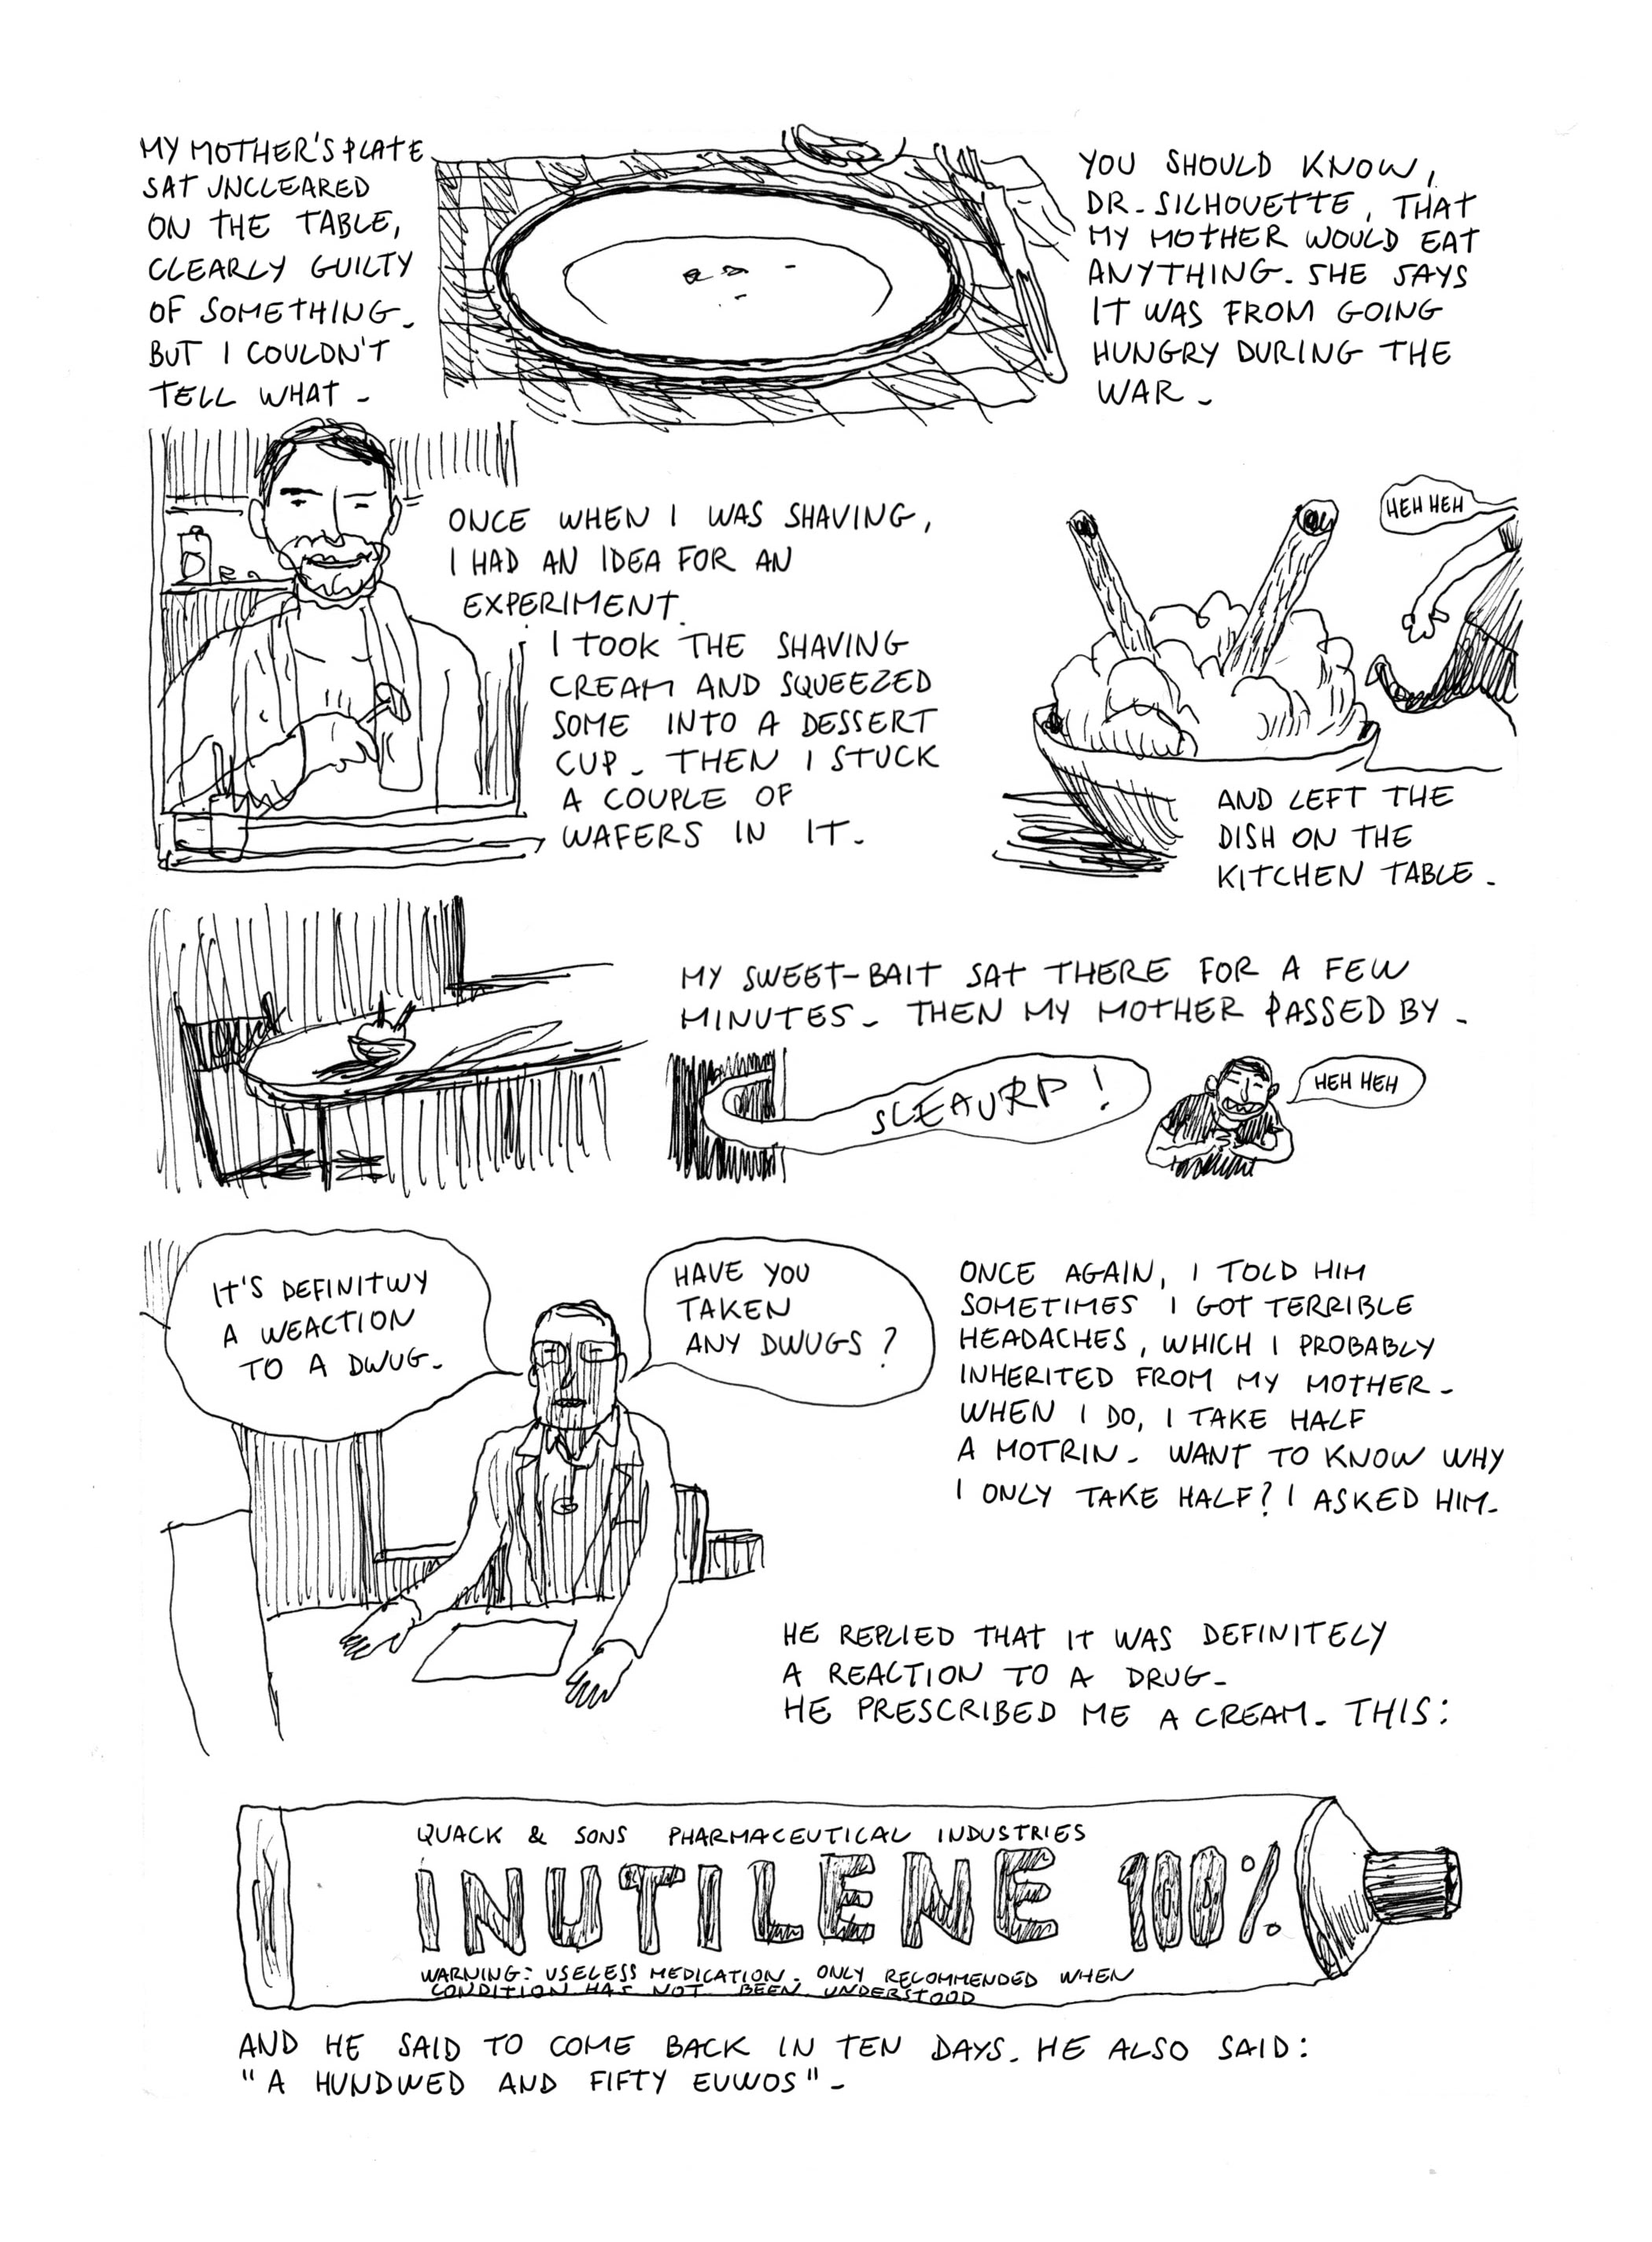 MY MOTHER'S PLATE
SAT UNCLEARED
ON THE TABLE,
CLEARLY GUILTY
OF SOMETHING.
BUT I COULDN'T
TELL WHAT.
YOU SHOULD KNOW,
DR. SILHOUETTE, THAT
MY MOTHER WOULD EAT
ANYTHING. SHE SAYS
IT WAS FROM GOING
HUNGRY DURING THE
WAR.
ONCE WHEN I WAS SHAVING,
I HAD AN IDEA FOR AN
EXPERIMENT.
I TOOK THE SHAVING
CREAM AND SQUEEZED
SOME INTO A DESSERT
CUP. THEN I STUCK
A COUPLE OF
WAFERS IN IT.
HEH HEH
AND LEFT THE
DISH ON THE
KITCHEN TABLE.
MY SWEET-BAIT SAT THERE FOR A FEW
MINUTES. THEN MY MOTHER PASSED BY.
SLEAURP!
HEH HEH
IT'S DEFINITWY
A WEACTION
TO A DWUG.
HAVE YOU
TAKEN
ANY DWUGS?
ONCE AGAIN, I TOLD HIM
SOMETIMES I GOT TERRIBLE
HEADACHES, WHICH I PROBABLY
INHERITED FROM MY MOTHER.
WHEN I DO, I TAKE HALF
A MOTRIN. WANT TO KNOW WHY
I ONLY TAKE HALF? I ASKED HIM.
HE REPLIED THAT IT WAS DEFINITELY
A REACTION TO A DRUG.
HE PRESCRIBED ME A CREAM. THIS:
QUACK & SONS PHARMACEUTICAL INDUSTRIES
INUTILENE 100%
WARNING: USELESS MEDICATION. ONLY RECOMMENDED WHEN
CONDITION HAS NOT BEEN UNDERSTOOD
AND HE SAID TO COME BACK IN TEN DAYS. HE ALSO SAID:
"A HUNDWED AND FIFTY EUWOS".